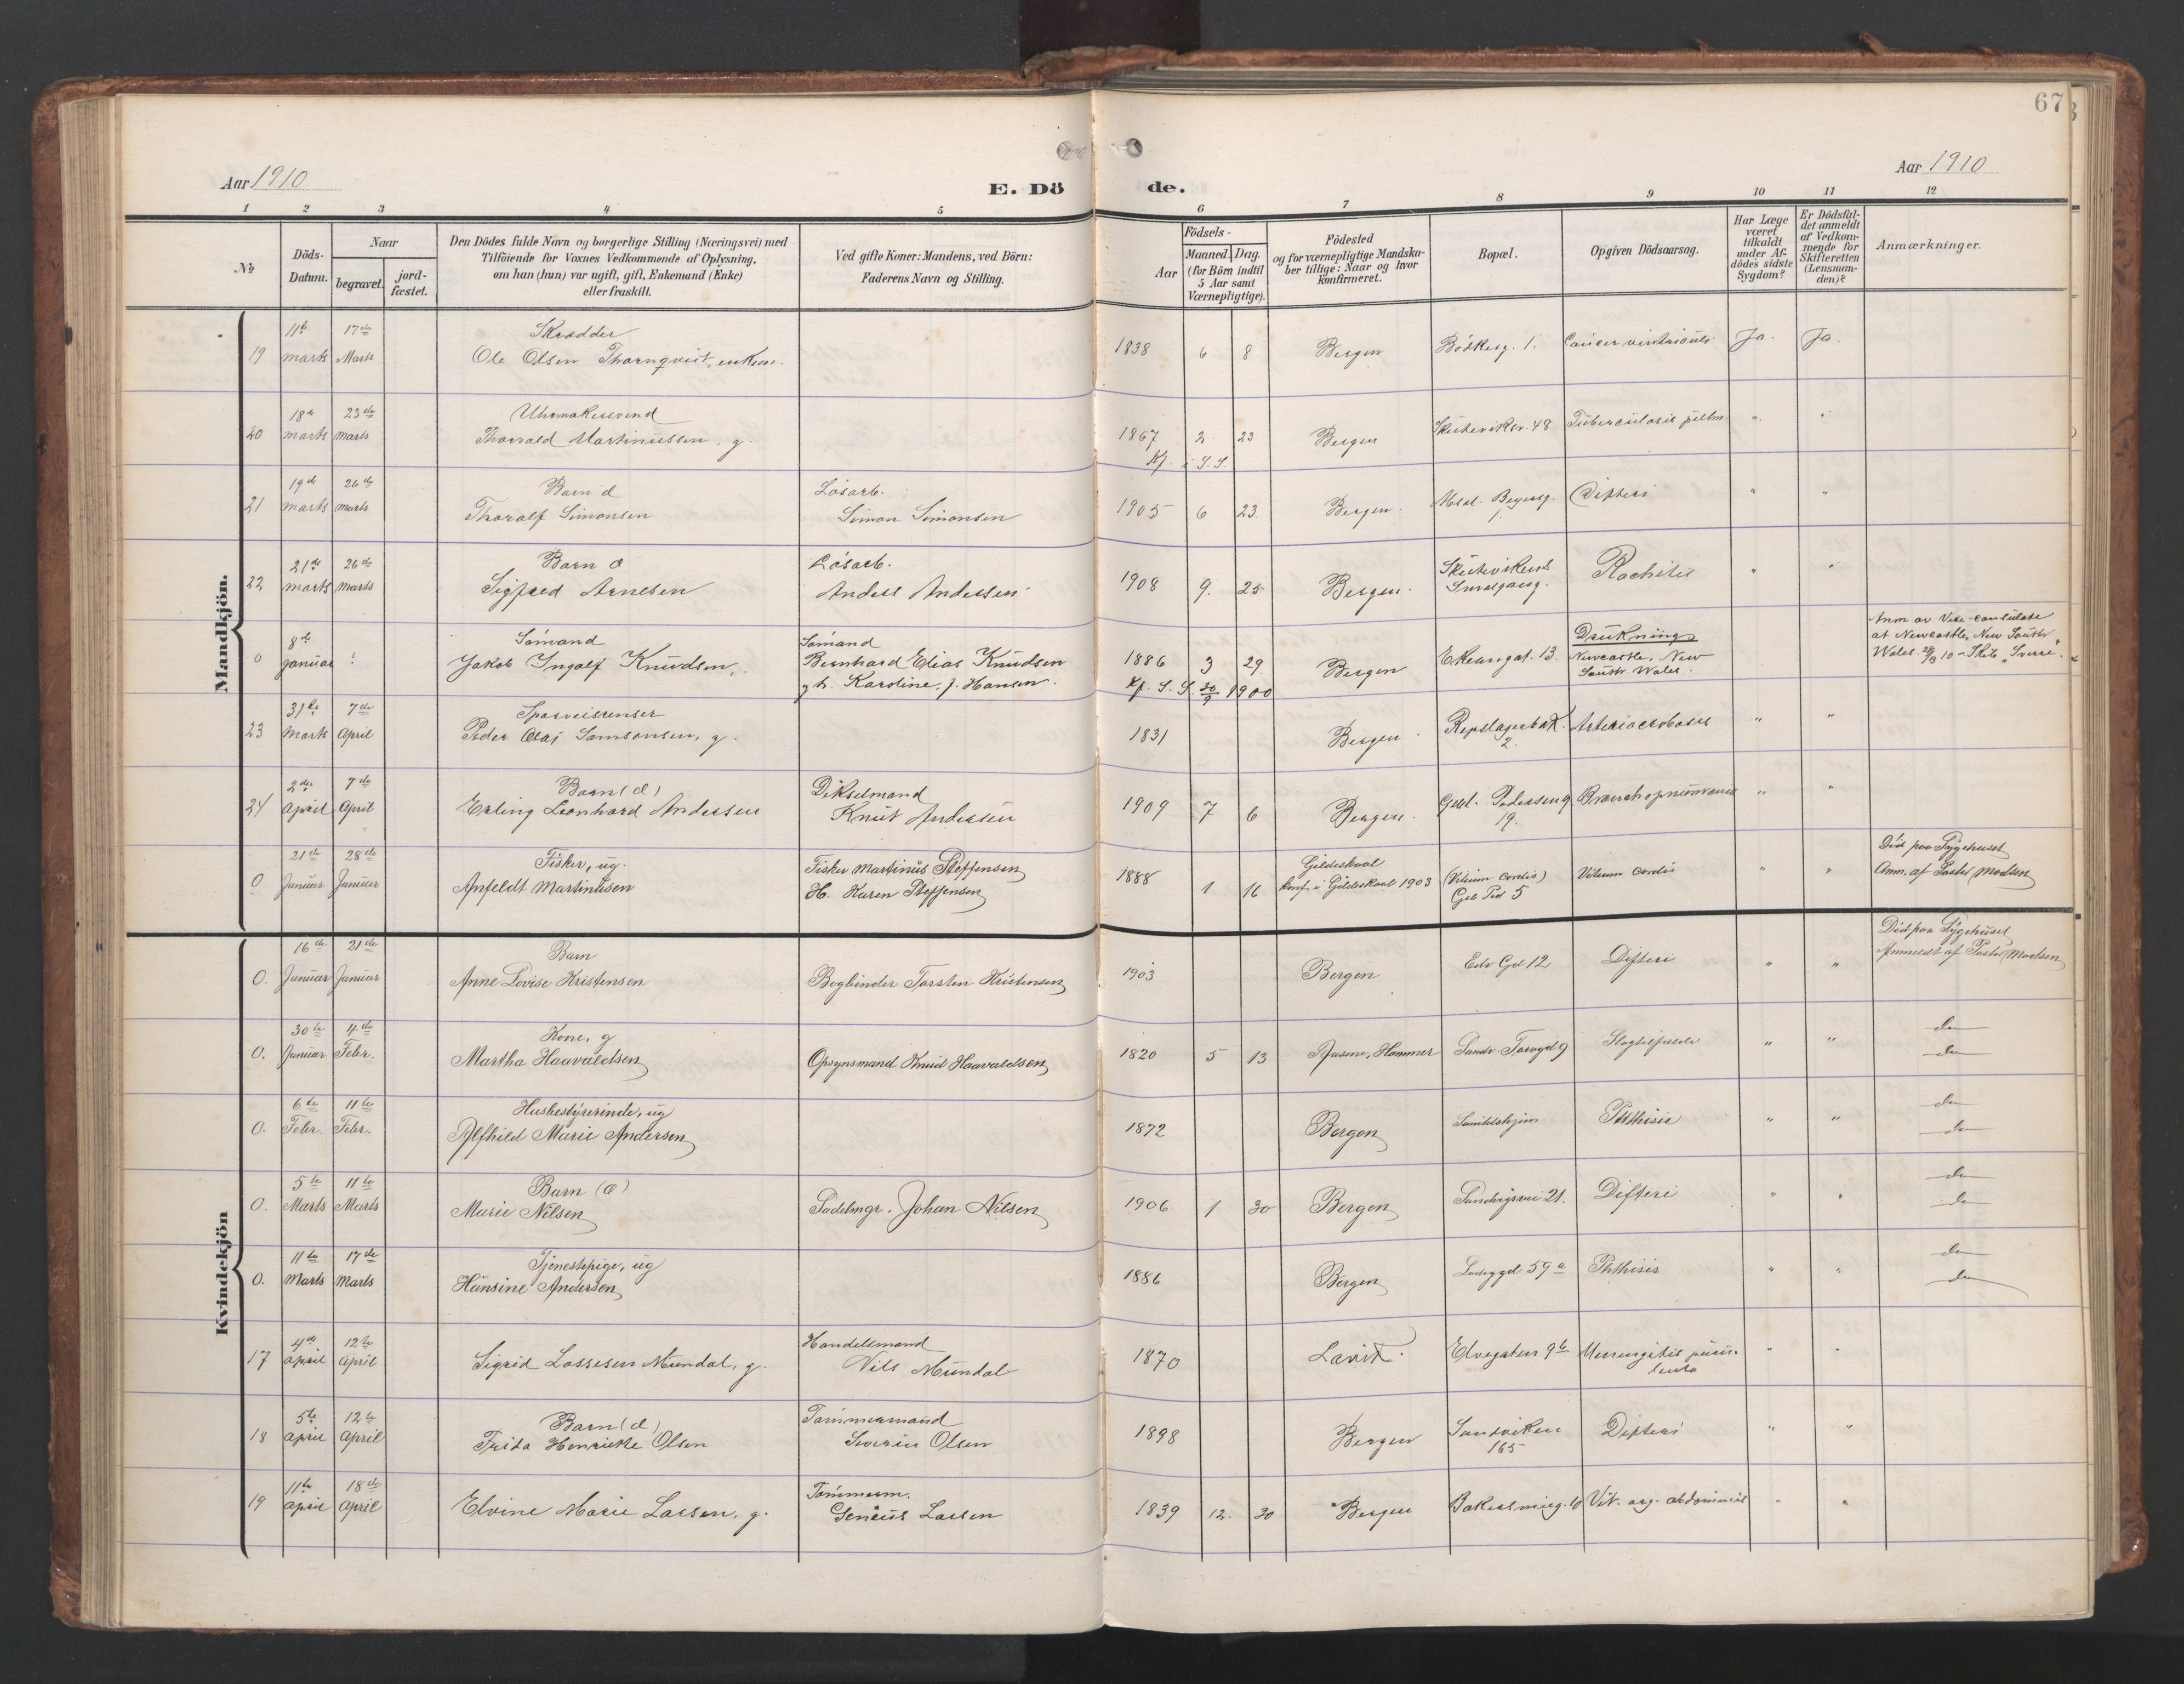 67
Aar 1910
E. Dö
de.
Aar 1910
1 2 3 4 5 6 7 8 9 10 11 12
No
Döds-
Datum.
Naar
begravet.
jord-
fæstet.
Den Dödes fulde Navn og borgerlige Stilling (Næringsvei) med
Tilföiende for Voxnes Vedkommende af Oplysning,
om han (hun) var ugift, gift, Enkemand (Enke)
eller fraskilt.
Ved gifte Koner: Mandens, ved Börn:
Faderens Navn og Stilling.
Födsels-
Aar
Maaned. Dag.
(for Börn indtil
5 Aar samt
Værnepligtige).
Födested
og for værnepligtige Mandska-
ber tillige: Naar og hvor
konfirmeret.
Bopæl.
Opgiven Dödsaarsag.
Har Læge
været
tilkaldt
under Af-
dödes sidste
Sygdom?
Er Dödsfal-
det anmeldt
af Vedkom-
mende for
Skifteretten
(Lensman-
den)?
Anmærkninger.
Mandkjön.
11te 17de Skrædder
19 marts Marts Ole Olsen Thornqvist, enkem. 1838 6 8 Bergen Bödkerg. 1. Cancer ventriculi Ja. Ja.
18de 23de Uhrmakersvend
20 marts marts Thorvald Martinussen, g. 1867 2 23 Bergen Skuteviksv. 48 Tuberculosis pulm. " "
Kf. i S.S.
19de 26de Barn d Lösarb.
21 marts marts Thoralf Simonsen Simon Simonsen 1905 6 23. Bergen. Absal. Beyersg. 1. Difteri " "
21de 26de Barn d Lösarb.
22 marts marts Sigfred Arnesen Anders Andersen 1908 9. 25 Bergen. Skutevikens
Smalgang. Rachitis " "
8de Sömand Sömand
0 januar ? Jakob Ingolf Knudsen, Bernhard Elias Knudsen
g. h. Karoline, f. Hansen. 1886 3 29. Bergen Ekrengat. 13.
Kf. S. S. 30/9 1900
Drukning
Newcastle, New
South Wales.
Anm av Vice-consulate
at Newcastle, New South
Wales 28/3 10 - Skib "Sverre"
31te 7de Sporveisrenser
23 Marts April Peder Olai Samsonsen, g. 1831 Bergen. Repslagerbak. 2. " "
2den 7de Barn (d) Dikselmand
24 April April Erling Leonhard Andersen Knut Andersen 1909 7 6 Bergen. Gert. Pedersensg 19. Bronchopneumonia " "
21de 28de Fisker, ug.
0 Januar Januar Anfeldt Martinusen Fisker Martinus Steffensen
H. Karen Steffensen 1888 1 16 Gildeskaal
konf. i Gildeskaal 1903 (Vitium cordis)
Geb Ped 5 Vitium cordis " "
Död paa Sygehuset
Anm. af Pastor Madsen
Kvindekjön
16de 21de Barn
0. Januar Januar Anne Lovise Kristensen Bogbinder Torsten Kristensen 1903 Bergen Edv Gd 12 Difteri " "
Död paa Sygehuset
Anmeldt af Pastor Madsen
30te 4de Kone, g
0. Januar Febr. Martha Haavaldsen Opsynsmand Knud Haavaldsen 1820 5 13 Aasene, Hammer Sandv. Torvgd 9 Slagtilfælde " " do
do
6te 11te Husbestyrerinde, ug
0. Febr. Febr. Alfhild Marie Andersen 1872 Bergen Phthisis " " do
do
5te 11te Barn (d)
0. Marts Marts Marie Nilsen Sadelmgr. Johan Nilsen 1906 1 30 Bergen Sandvigsvei 21. Difteri " " do
do
11te 17de Tjenestepige, ug
0. Marts Marts Hansine Andersen 1886 Bergen Ladeggd 59a Phthisis " " do
do
4de 12te Handelsmand
17 april April Sigrid Lassesen Mundal, g. Nils Mundal 1870 Lavik. Elvegaten 9b Meningitis puru-
lenta " "
5te 12te Barn (d) Tömmermand
18 april April Frida Henrikke Olsen Severin Olsen 1898 Bergen Sandviken
165 Difteri " "
11te 18de Tömmerm.
19 april April Elvine Marie Larsen, g. Senius Larsen 1839 12. 30 Bergen Bakersmug. 10 Vit. org. abdominis " "